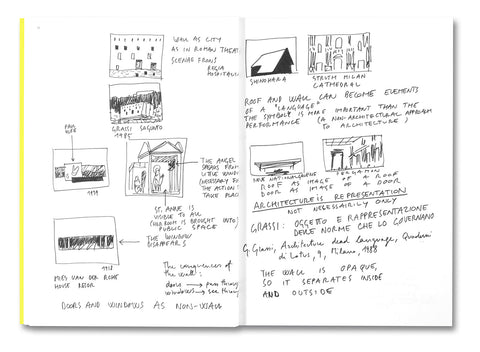 WALL AS CITY
AS IN ROMAN THEATR
SCENAE FRONS
REGIA
HOSPITALIU
GRASSI SAGUNTO
1985
THE ANGEL
SPEAKS FROM
LITTLE WINDO
NECESSARY FO
THE ACTION T
TAKE PLAC
ST. ANNE IS
VISIBLE TO ALL
BROUGHT INTO
PUBLIC SPACE
THE WINDOW
DISAPPEARS
MIES VAN DER ROHE
The consequences of
the wall:
doors → pass throug
windows → see throug
DOORS AND WINDOWS AS NON-WALL
SHINOHARA
MILAN
CATHEDRAL
ROOF AND WALL CAN BECOME ELEMENTS
OF A "LANGUAGE"
THE SYMBOL IS MORE IMPORTANT THAN THE
PERFORMANCE (A NON-ARCHITECTURAL APPROACH
TO ARCHITECTURE)
PERGAMON
ROOF AS IMAGE OF A ROOF
DOOR AS IMAGE OF A DOOR
ARCHITECTURE IS REPRESENTATION
NOT NECESSARILY ONLY
GRASSI: OGGETTO E RAPPRESENTAZIONE
NORME CHE LO GOVERNANO
G. Grassi, Architecture dead language, Quaderni
di Lotus, 9, Milano, 1988
THE WALL IS OPAQUE,
SO IT SEPARATES INSIDE
AND OUTSIDE